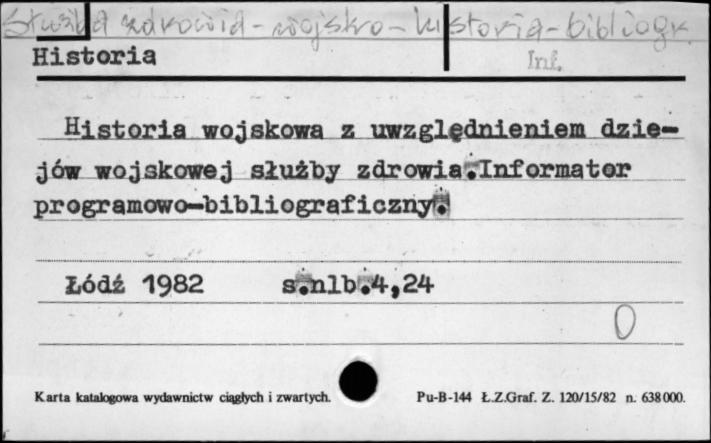 Służba zdrowia - wojsko - historia - bibliogr.
Historia
Inf.
Historia wojskowa z uwzględnieniem dzie-
jów wojskowej służby zdrowia.Informator
programowo-bibliograficzny.
Łódź 1982 s.nlb.4,24
0
Karta katalogowa wydawnictw ciągłych i zwartych. Pu-B-144 Ł.Z.Graf. Z. 120/15/82 n. 638000.